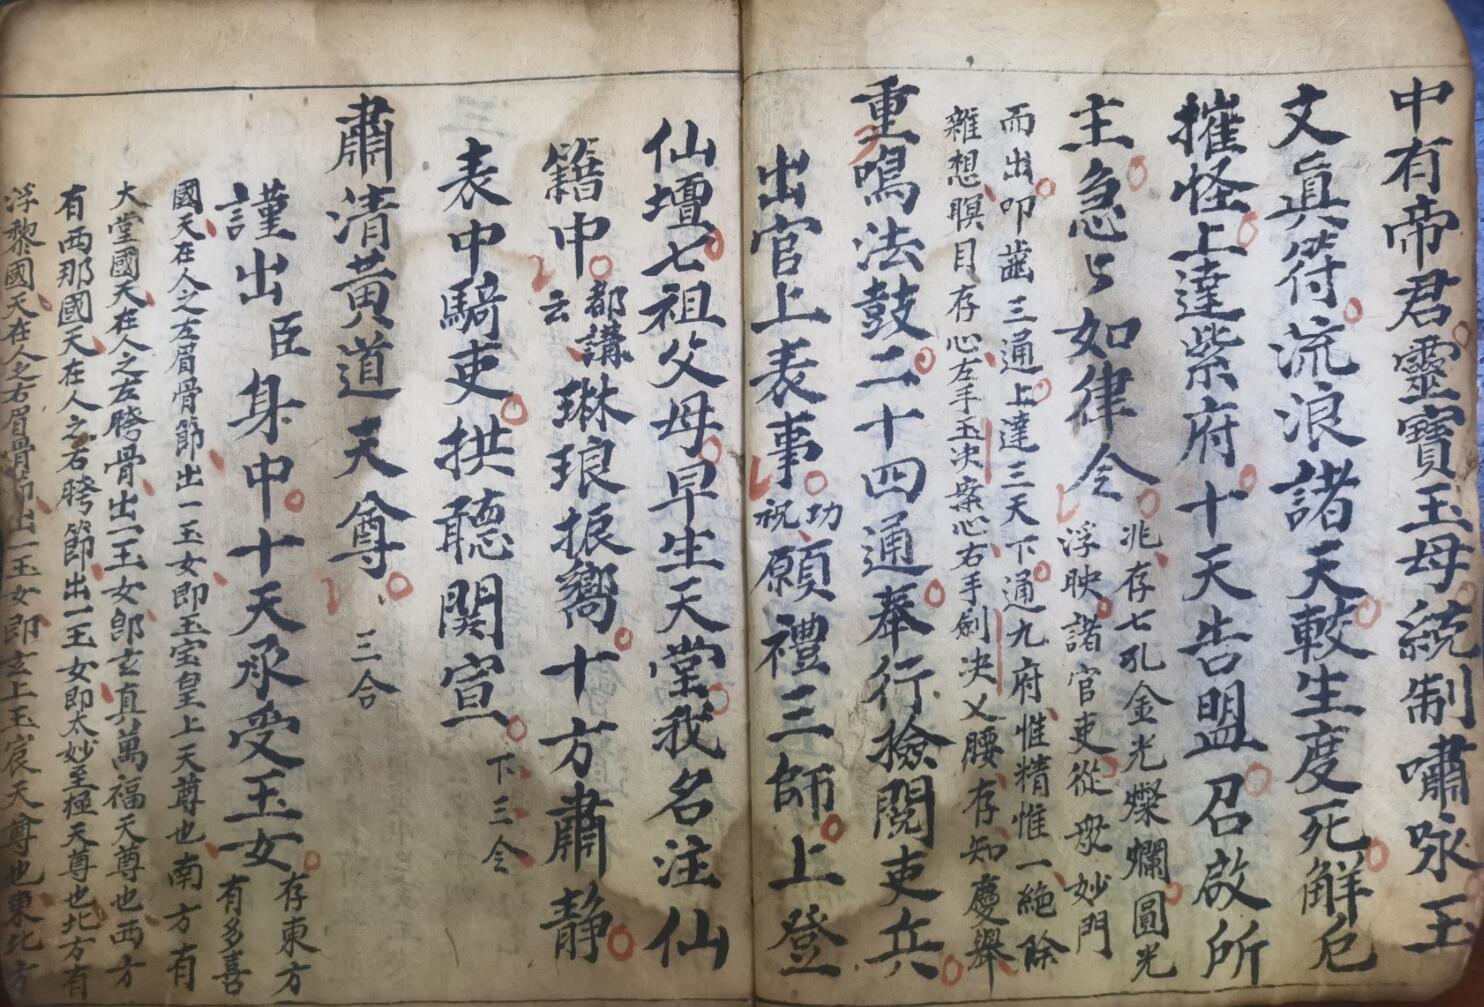 中有帝君靈寶玉母統制嘯咏玉
文眞符流浪諸天較生度死觧厄
摧怪上達紫府十天告盟召啟所
主急々如律令
兆存七孔金光燦爛圓光
浮映諸官吏從衆妙門
而出叩齒三通上達三天下通九府惟精惟一絕除
雜想瞑目存心左手玉决案心右手劍决乂腰存知慶舉
重鳴法鼓二十四通奉行撿閱吏兵
出官上表事
功
祝
願禮三師上登
仙壇七祖父母早生天堂我名注仙
籍中
都講
云
琳琅振嚮十方肅靜
表中騎吏拱聽関宣
下三仝
肅清黃道天尊
三仝
謹出臣身中十天承受玉女
存東方
有多喜
國天在人之左眉骨節出一玉女即玉宝皇上天尊也南方有
大堂國天在人之左胯骨出一玉女即玄真萬福天尊也西方
有西那國天在人之右胯節出一玉女即太妙至極天尊也北方有
浮黎國天在人之右眉骨节出一玉女即玄上玉宸天尊也東北方